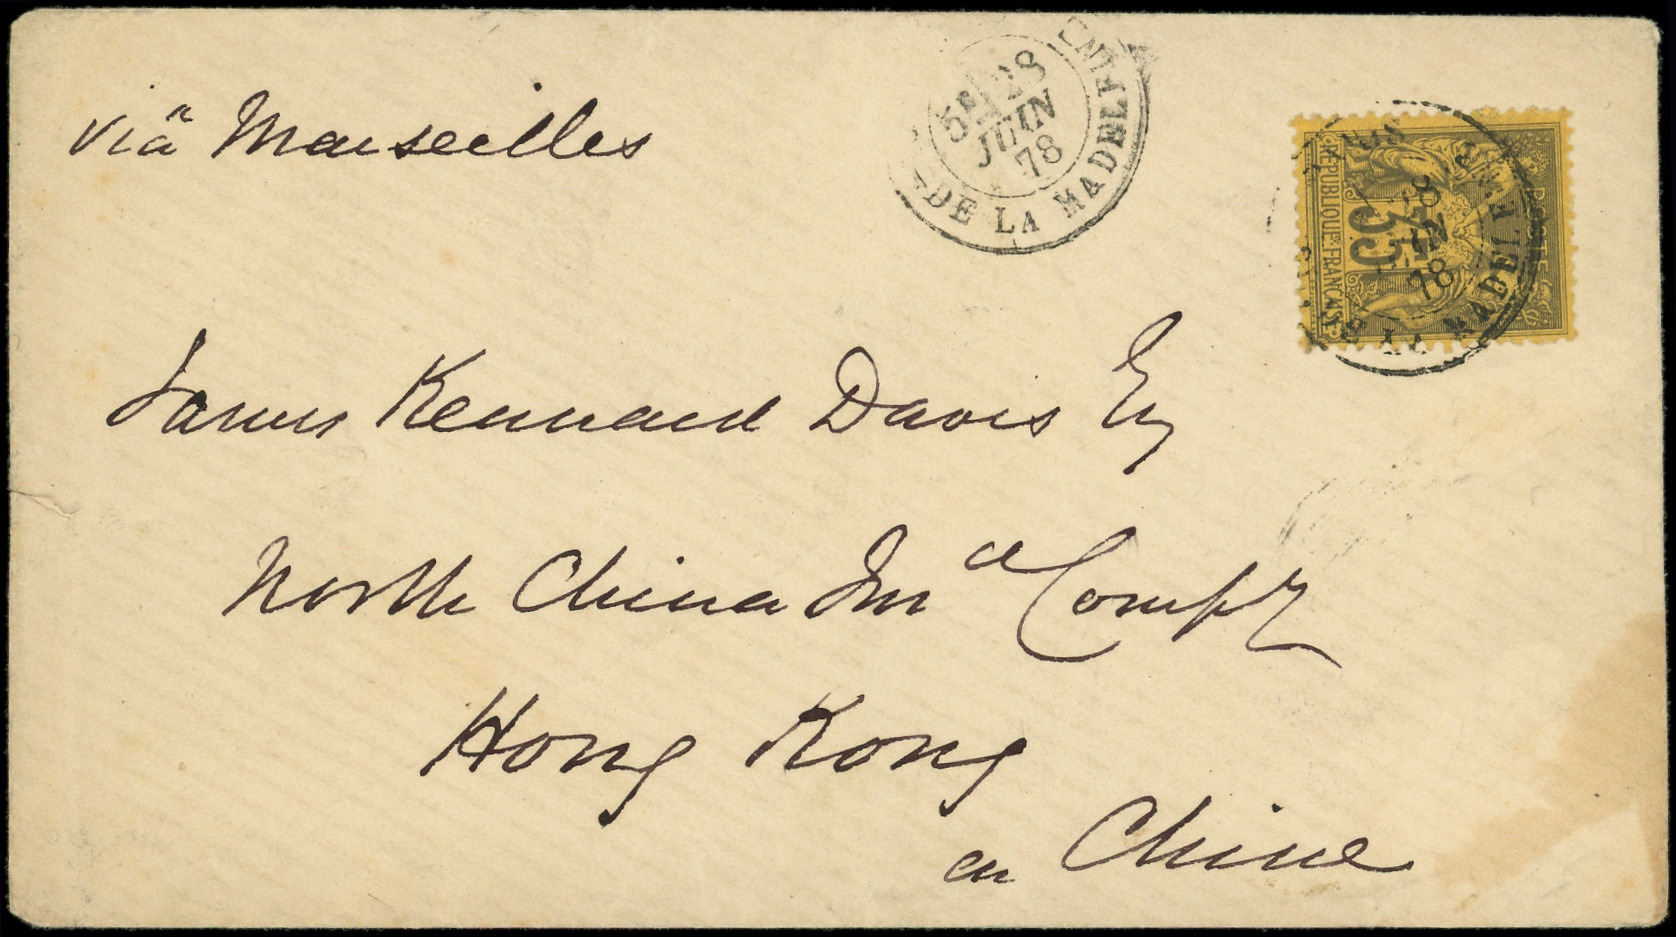 viâ Marseilles
5E 28
JUIN
78
DE LA MADELEINE
RÉPUBLIQUE FRANÇAISE
35
POSTE
28
JUIN
78
LA MADELEINE
James Kennard Davis Esq
North China Insce Compy
Hong Kong
en Chine